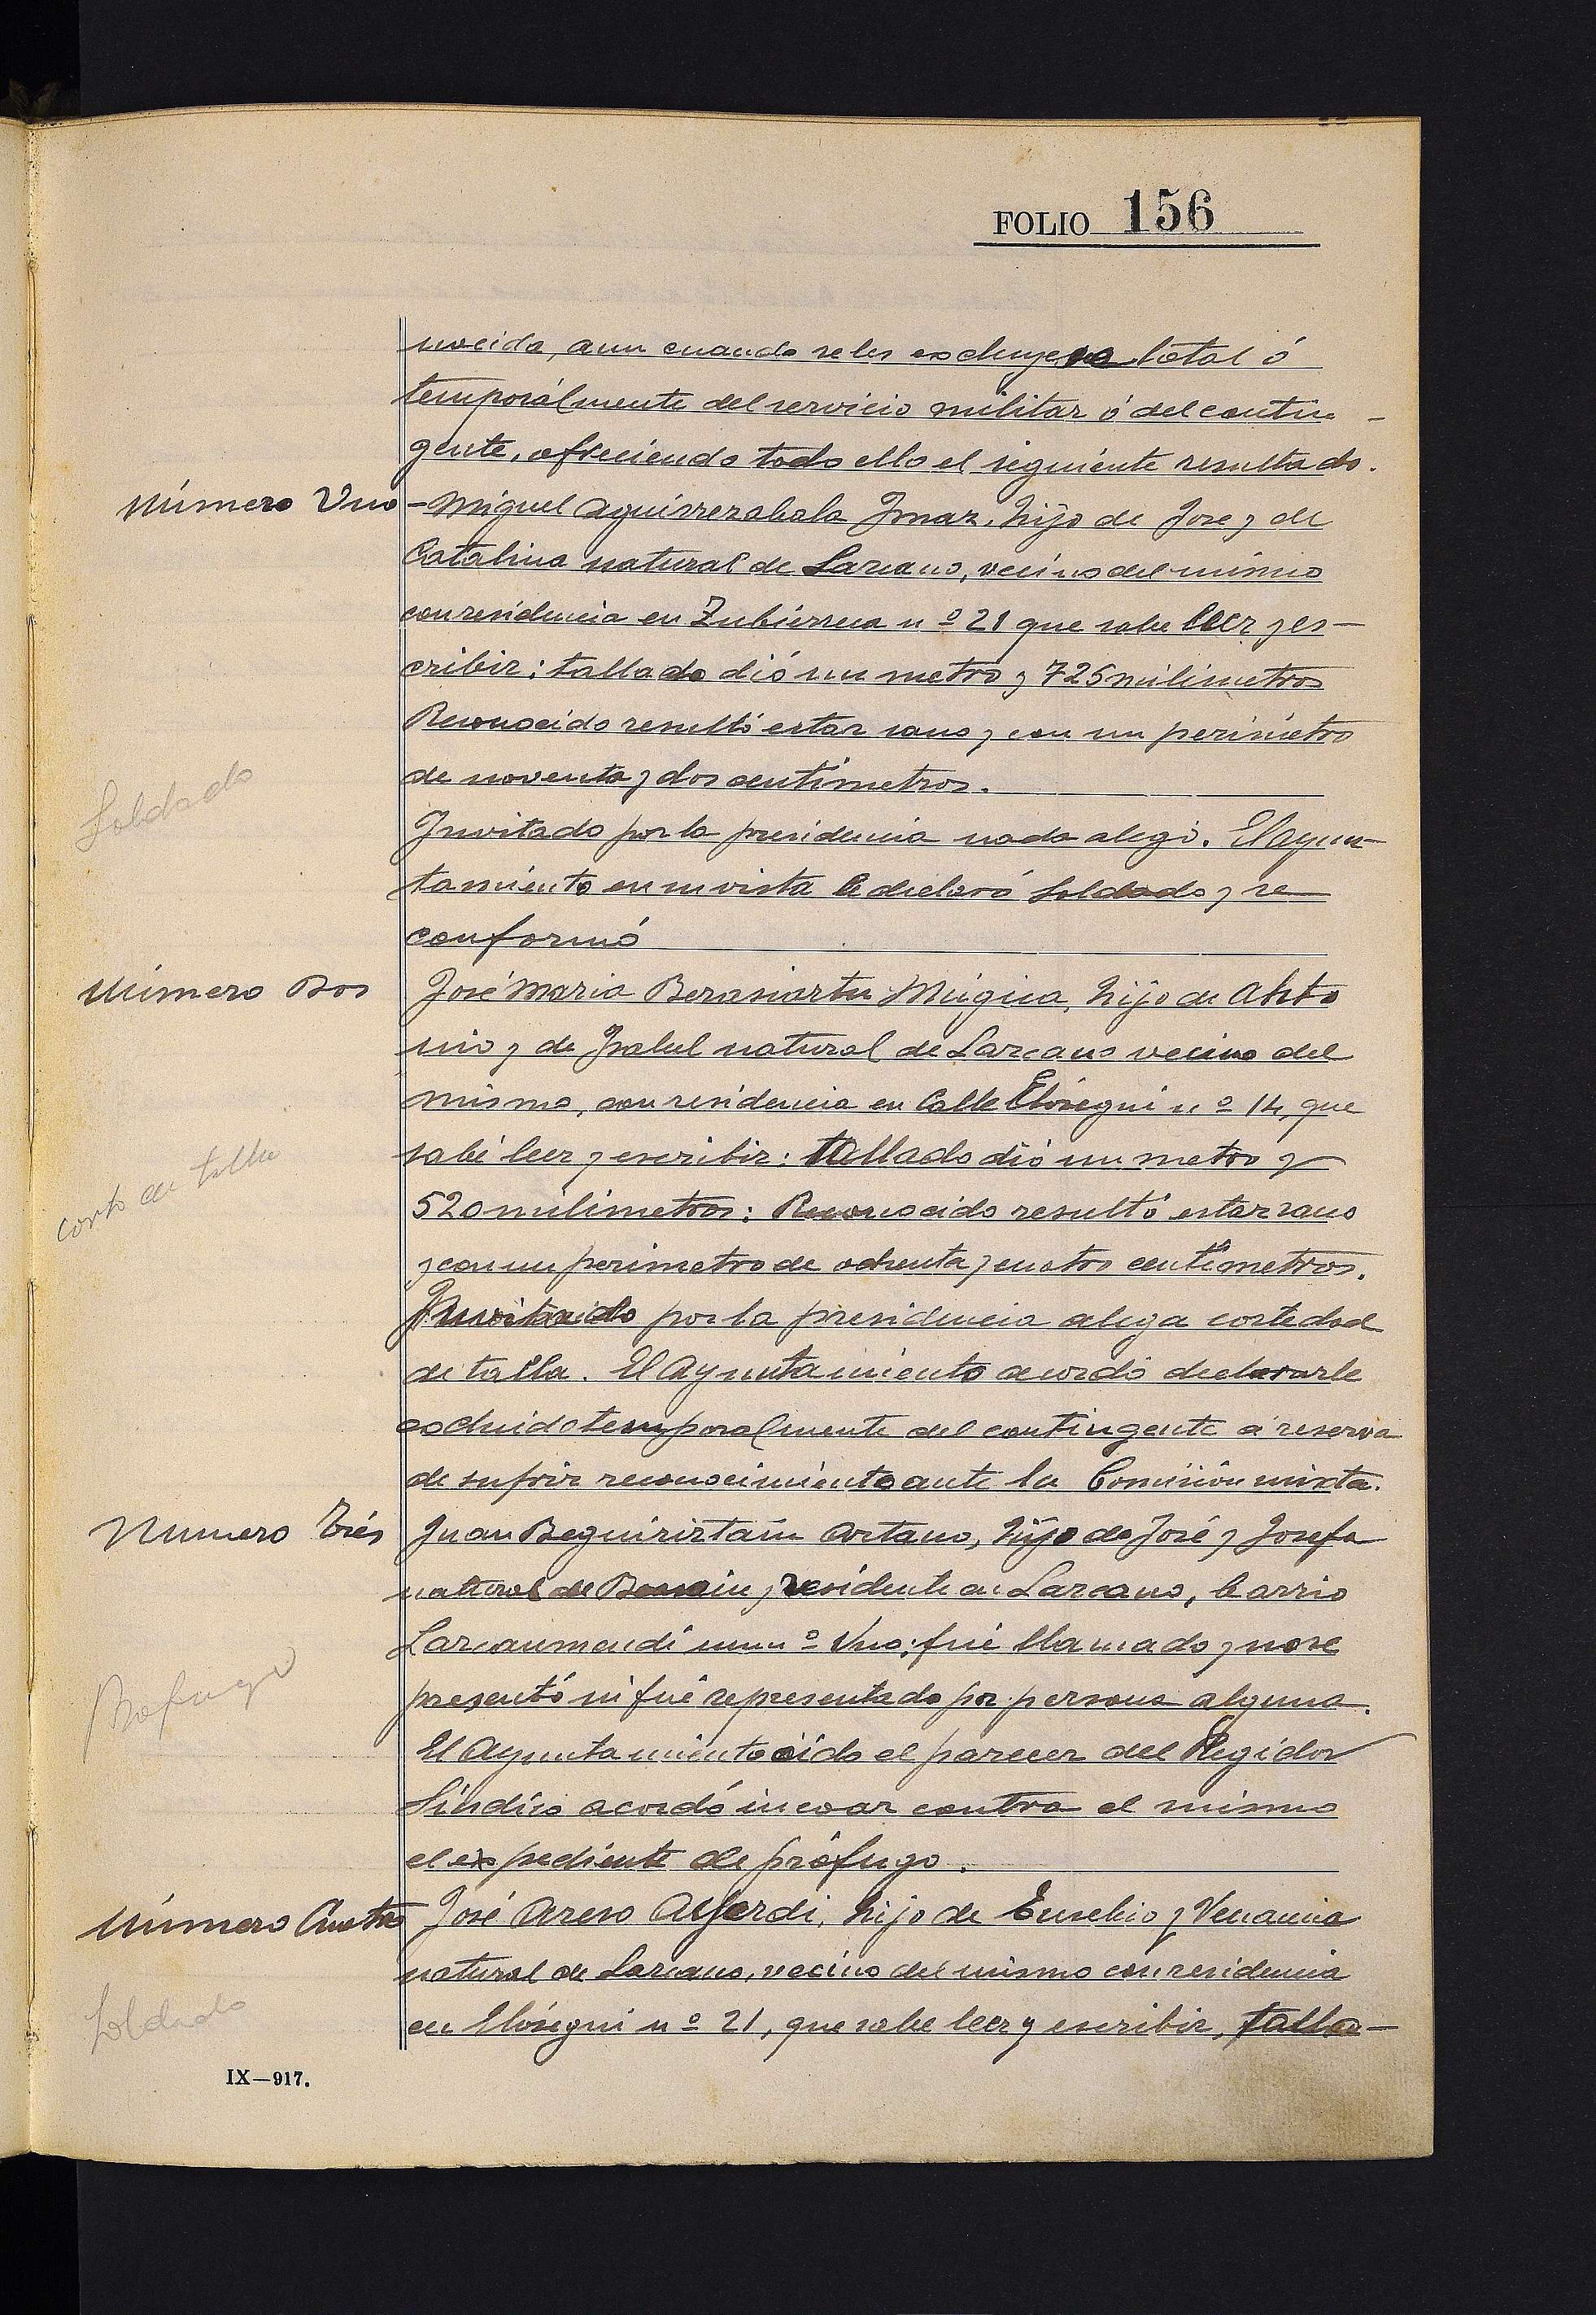 FOLIO 156
nocida, aun cuando se les excluyese total ó
temporálmente del servicio militar ó del contin-
gente, ofreciendo todo ello el siguiente resultado.
Número Uno - Miguel Aguirrezabala Imaz, hijo de Jose y de
Catalina natural de Lazcano, vecino del mismo
con residencia en Zubierreca nº 21 que sabe leer y es-
cribir: tallado dió un metro y 725 milimetros
Reconocido resultó estar sano y con un perímetro
de noventa y dos centímetros.
Soldado
Invitado por la presidencia nada alegó. El ayun-
tamiento en su vista le declaró soldado y se
conformó
Número Dos José Maria Berasiartu Múgica, hijo de Anto
nio y de Isabel natural de Lazcano vecino del
mismo, con residencia en Calle Elósegui nº 14, que
sabé leer y escribir: tallado dió un metro y
corto de talla
520 milimetros: Reconocido resultó estar sano
y con un perimetro de ochenta y cuatro centímetros.
Invitado por la presidencia alega cortedad
de talla. El Ayuntamiento acordó declararle
excluido temporalmente del contingente á reserva
de sufrir reconocimiento ante la Comisión mixta.
Numero Trés Juan Beguiriztain Artano, hijo de José y Josefa
natural de y residente en Lazcano, barrio
Lazcaumendi numº Uno; fué llamado y no se
Prófugo
presentó ni fué representado por persona alguna.
El Ayuntamiento oido el parecer del Regidor
Síndico acordó incoar contra el mismo
el expediente de prófugo.
Número Cuatro José Areso hijo de Eusebio y Venancia
natural de Lazcano, vecino del mismo con residencia
Soldado
en Elósegui nº 21, que sabe leer y escribir, talla-
IX—917.